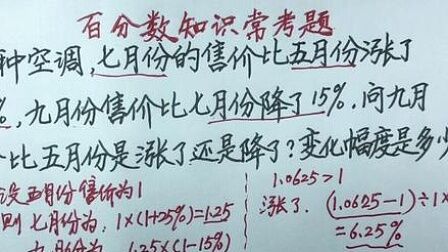 百分数知识常考题
种空调,七月份的售价比五月份涨了
%,九月份售价比七月份降了15%.问九月
比五月份是涨了还是降了?变化幅度是多少
设五月份售价为1
则七月份为:1×(1+25%)=1.25
1.25×(1-15%)
1.0625>1
涨了.(1.0625-1)÷1×
=6.25%